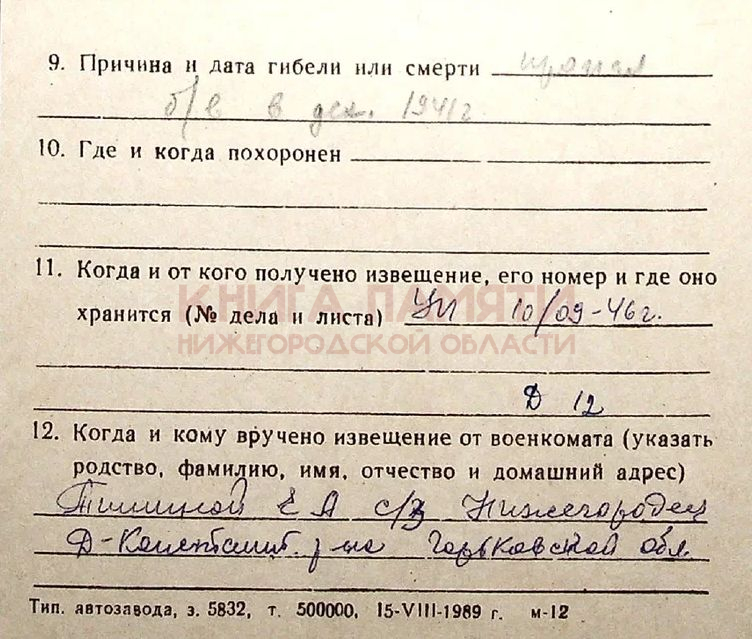 9. Причина и дата гибели или смерти пропал
б/в в дек. 1941г
10. Где и когда похоронен
11. Когда и от кого получено извещение, его номер и где оно
КНИГА ПАМЯТИ
хранится (№ дела и листа) УИ 10/09-46г.
НИЖЕГОРОДСКОЙ ОБЛАСТИ
Д 12
12. Когда и кому вручено извещение от военкомата (указать
родство, фамилию, имя, отчество и домашний адрес)
Е А с/з Нижегородец
Д-Констант. р-на Горьковской обл
Тип. автозавода, з. 5832, т. 500000, 15-VIII-1989 г. м-12